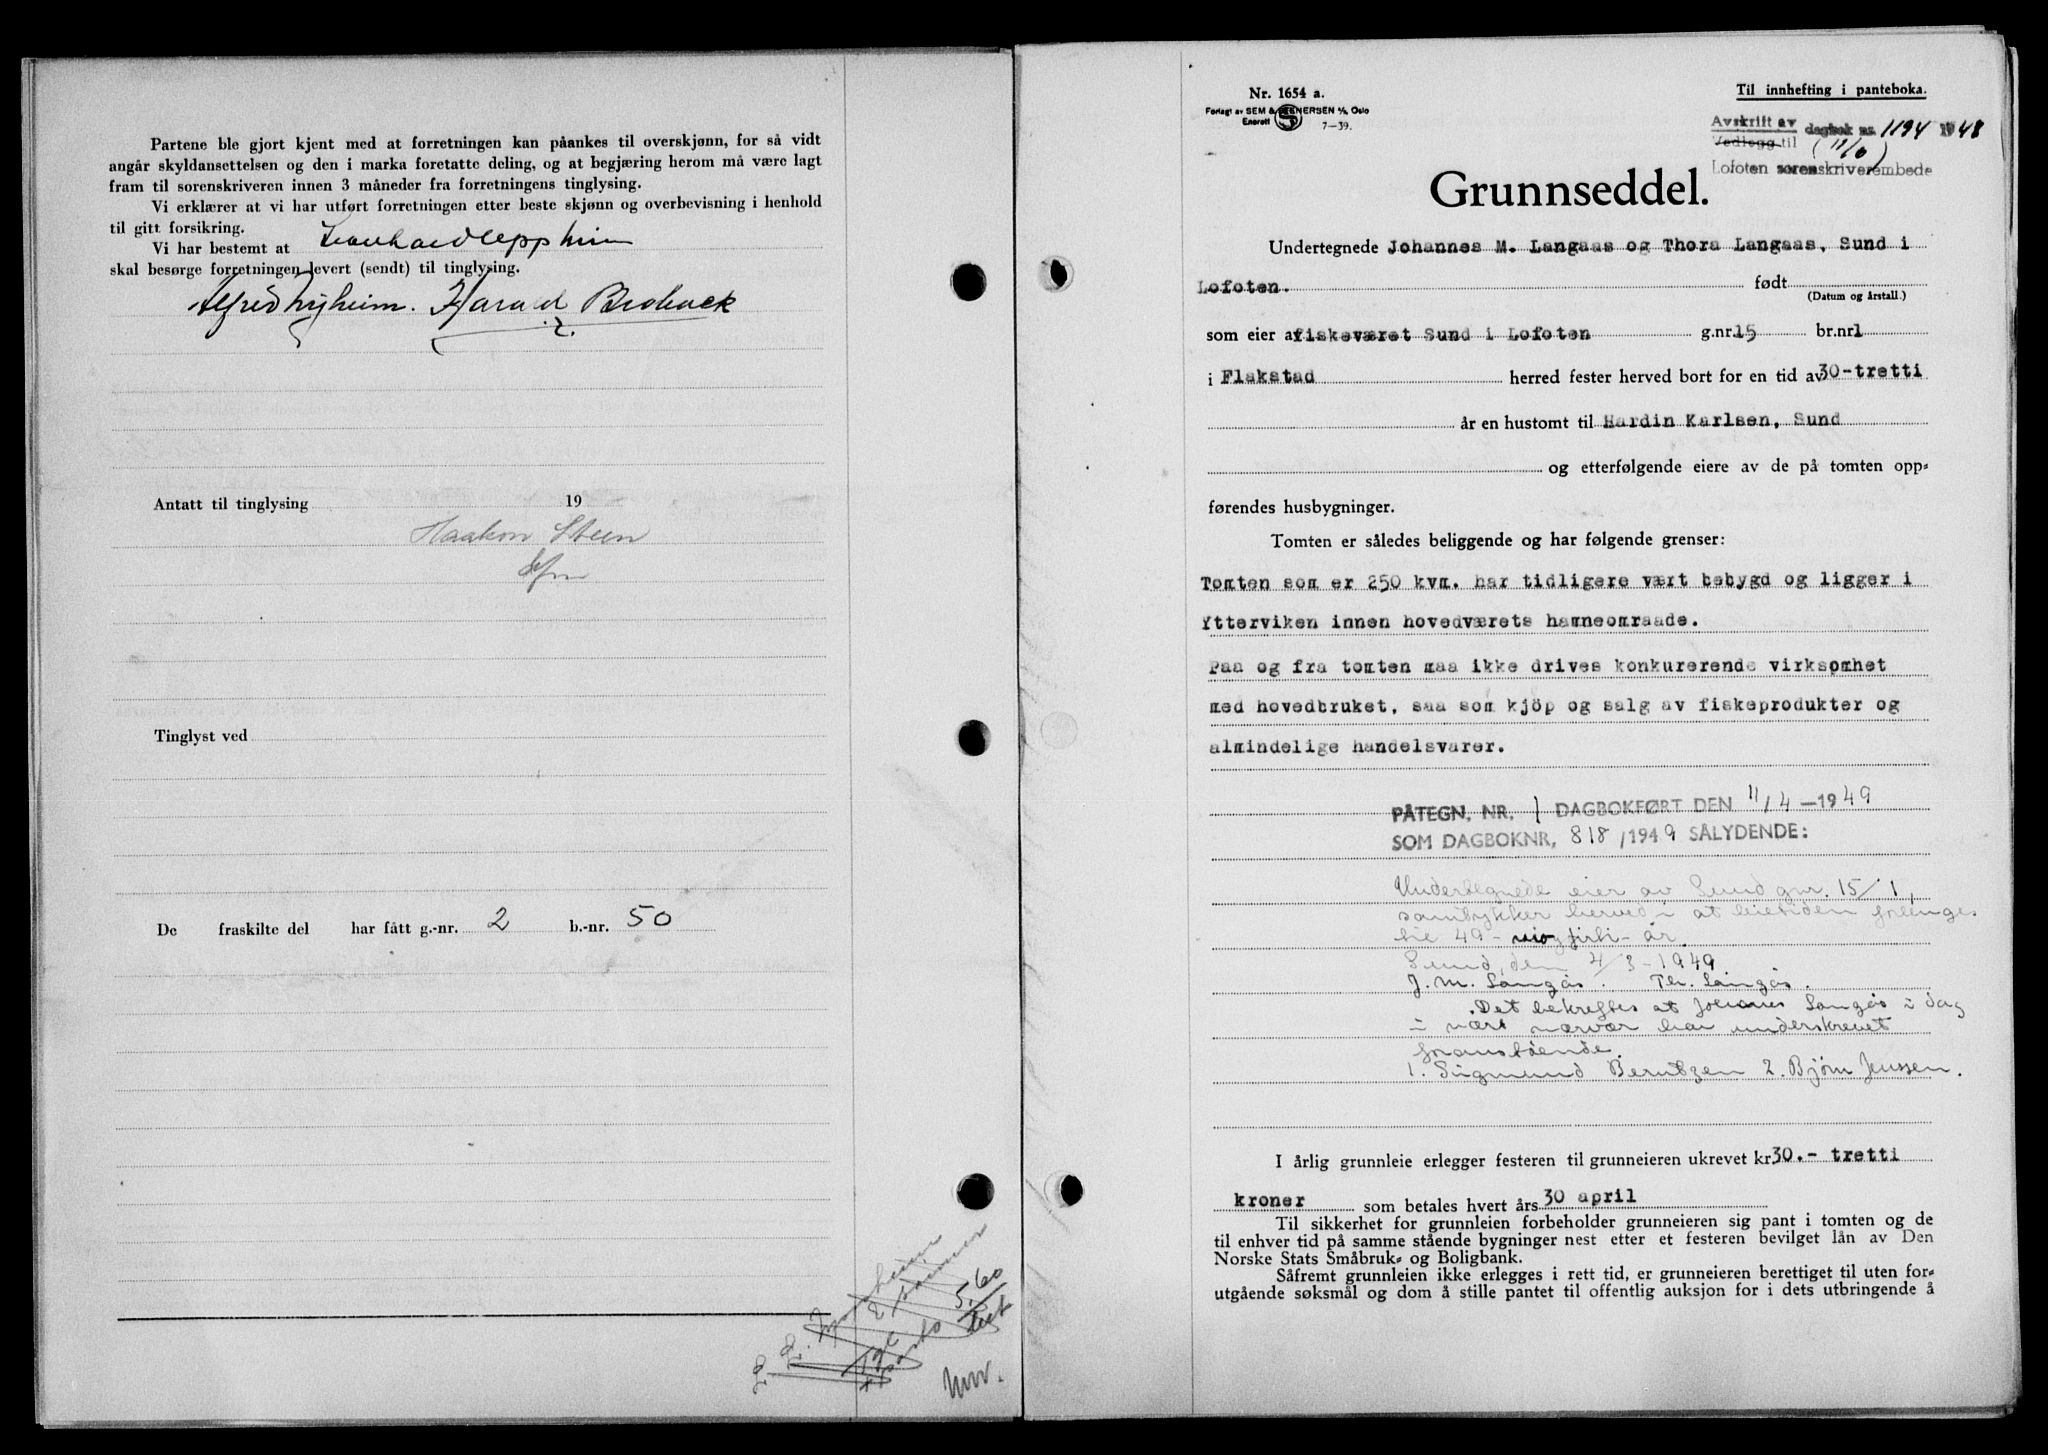 Partene ble gjort kjent med at forretningen kan påankes til overskjønn, for så vidt
angår skyldansettelsen og den i marka foretatte deling, og at begjæring herom må være lagt
fram til sorenskriveren innen 3 måneder fra forretningens tinglysing.
Vi erklærer at vi har utført forretningen etter beste skjønn og overbevisning i henhold
til gitt forsikring.
Vi har bestemt at
skal besørge forretningen levert (sendt) til tinglysing.
Alfred Nyheim. Harald Brobakk
Antatt til tinglysing 19
Haakon Steen
Tinglyst ved
De fraskilte del har fått g.-nr. 2 b.-nr. 50
5.60
Nr. 1654 a.
Forlagt av SEM & STENERSEN A/S, Oslo
Enerett 7—39.
Til innhefting i panteboka.
Avskrift av dagbok nr. 1194 1948
Vedlegg til (11/6)
Lofoten sorenskriverembede
Grunnseddel.
Undertegnede Johannes M. Langaas og Thora Langaas, Sund i
Lofoten. født
(Datum og årstall.)
som eier av fiskeværet Sund i Lofoten g.nr. 15 br.nr 1
i Flakstad herred fester herved bort for en tid av 30-tretti
år en hustomt til Hardin Karlsen, Sund
og etterfølgende eiere av de på tomten opp-
førendes husbygninger.
Tomten er således beliggende og har følgende grenser:
Tomten som er 250 kvm. har tidligere vært bebygd og ligger i
Ytterviken innen hovedværets havneomraade.
Paa og fra tomten maa ikke drives konkurerende virksomhet
med hovedbruket, saa som kjöp og salg av fiskeprodukter og
almindelige handelsvarer.
PÅTEGN. NR. 1 DAGBOKFØRT DEN 11/4-1949
SOM DAGBOKNR. 818/1949 SÅLYDENDE:
Undertegnede eier av Sund gnr. 15/1,
samtykker herved i at leietiden forlenges
til 49 - niogførti - år.
Sund, den 4/3-1949
J. M. Langås. Th. Langås.
Det bekreftes at Johannes Langås i dag
i vårt nærvær har underskrevet
foranstående.
1. Sigmund Berntzen 2. Bjørn Jenssen.
I årlig grunnleie erlegger festeren til grunneieren ukrevet kr 30.- tretti
kroner som betales hvert års 30 april
Til sikkerhet for grunnleien forbeholder grunneieren sig pant i tomten og de
til enhver tid på samme stående bygninger nest etter et festeren bevilget lån av Den
Norske Stats Småbruk- og Boligbank.
Såfremt grunnleien ikke erlegges i rett tid, er grunneieren berettiget til uten for-
utgående søksmål og dom å stille pantet til offentlig auksjon for i dets utbringende å